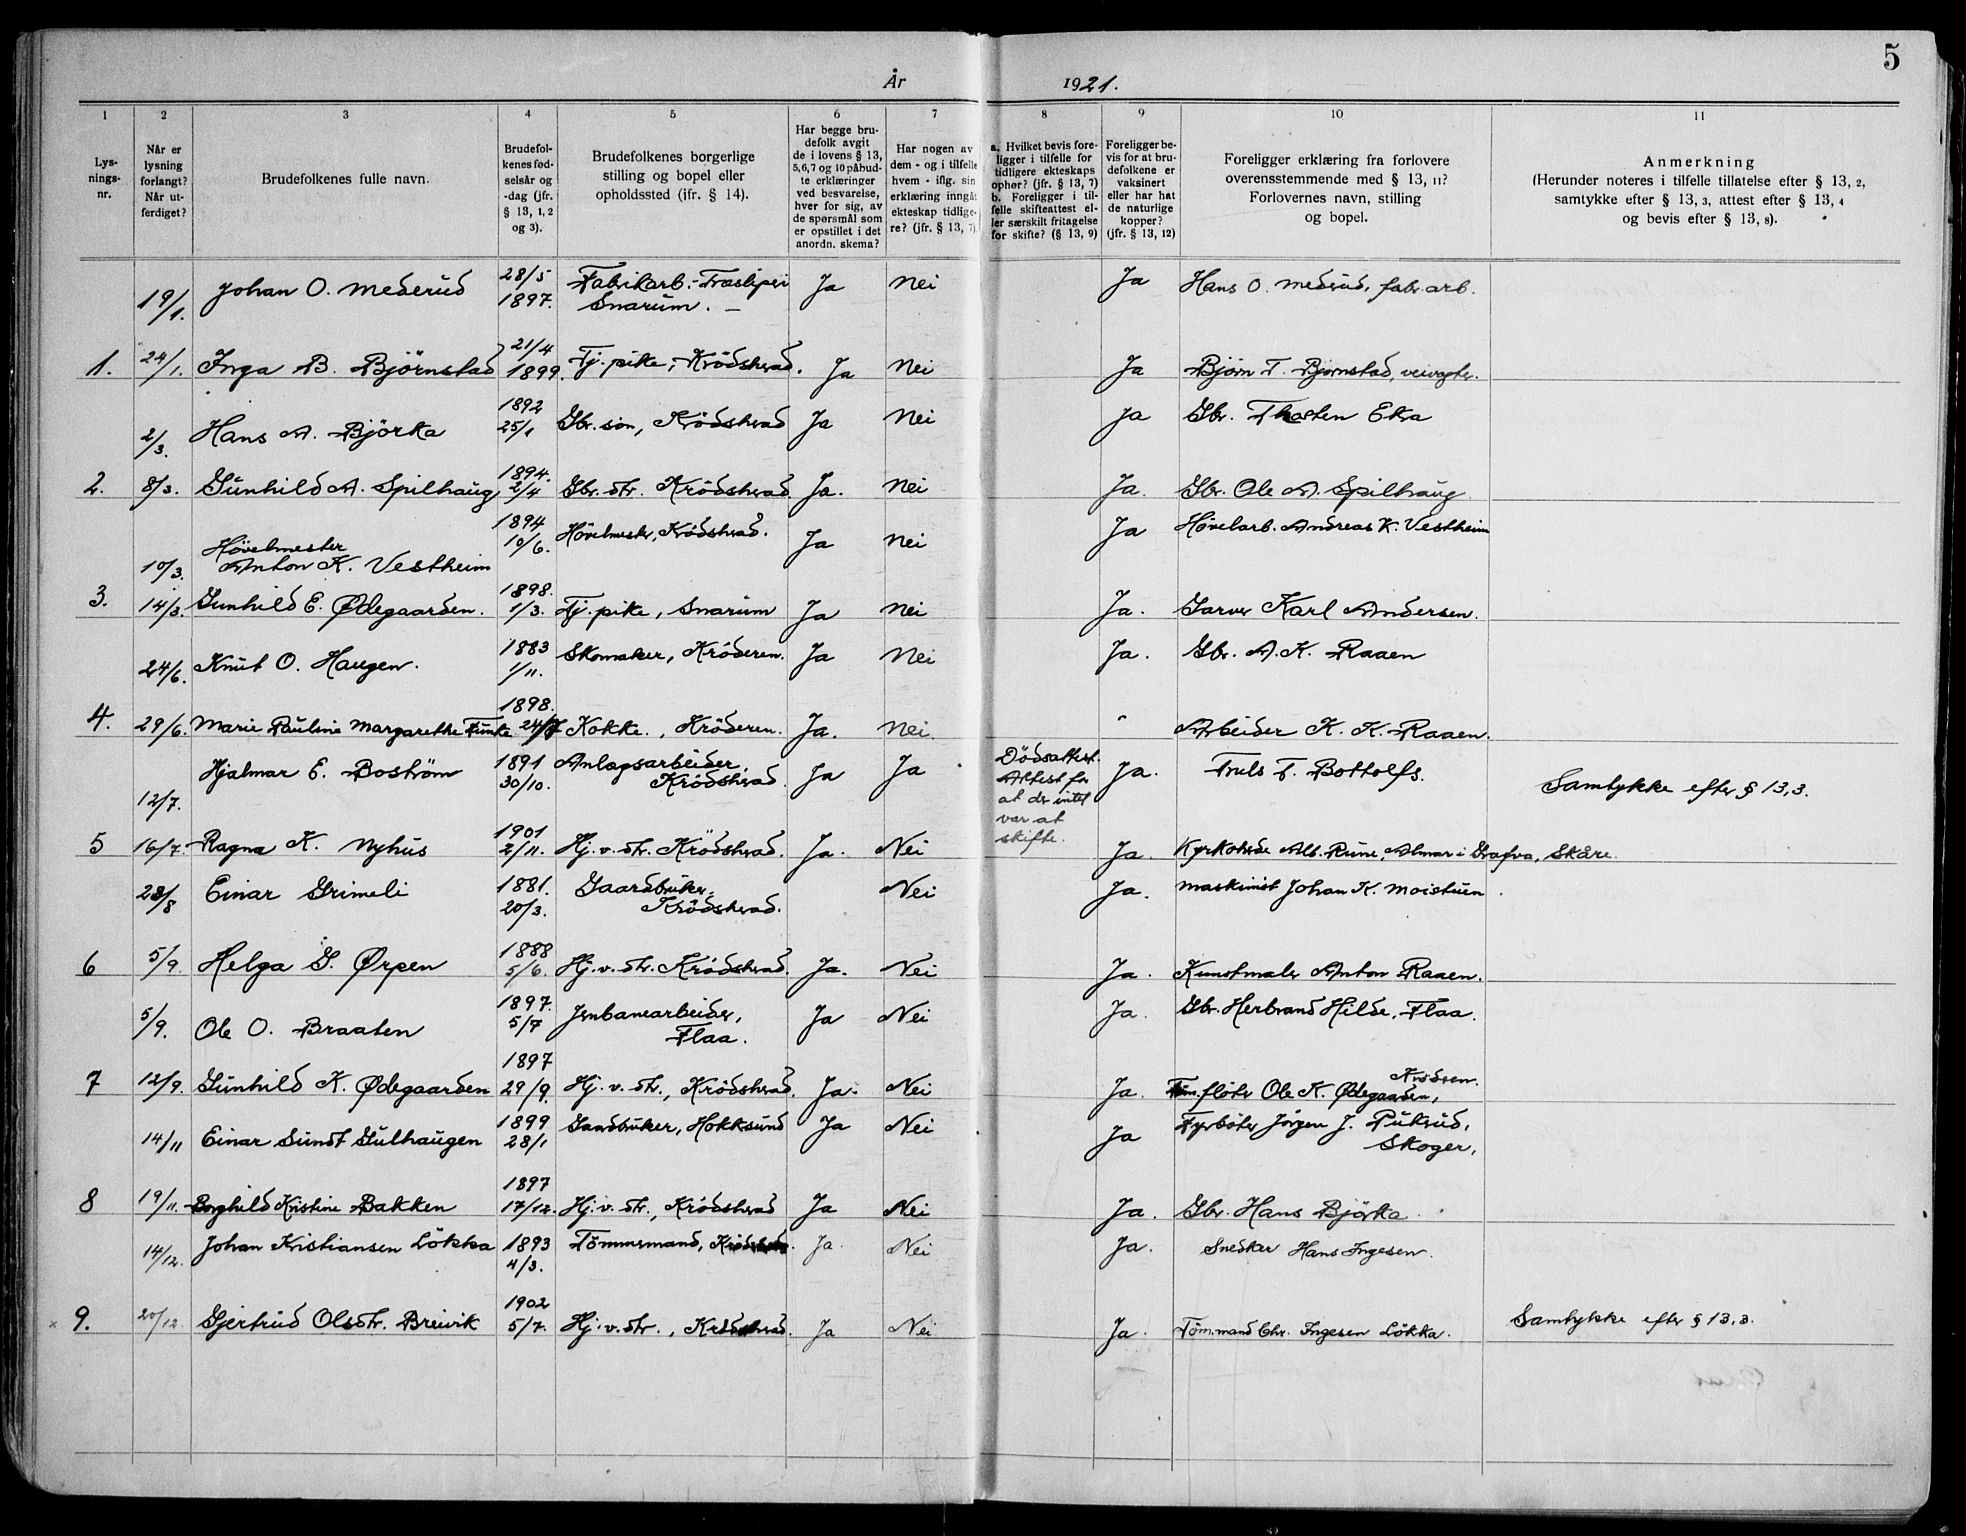 5
År 1921.
1 2 3 4 5 6 7 8 9 10 11
Lys-
nings-
nr.
Når er
lysning
forlangt?
Når ut-
ferdiget?
Brudefolkenes fulle navn.
Brudefol-
kenes fød-
selsår og
-dag (jfr.
§ 13, 1, 2
og 3).
Brudefolkenes borgerlige
stilling og bopel eller
opholdssted (ifr. § 14).
Har begge bru-
defolk avgit
de i lovens § 13,
5, 6, 7 og 10 påbud-
te erklæringer
ved besvarelse,
hver for sig, av
de spørsmål som
er opstillet i det
anordn. skema?
Har nogen av
dem - og i tilfelle
hvem - iflg. sin
erklæring inngåt
ekteskap tidlige-
re? (jfr. § 13, 7)
a. Hvilket bevis fore-
ligger i tilfelle for
tidligere ekteskaps
ophør? (jfr. § 13, 7)
b. Foreligger i til-
felle skifteattest el-
ler særskilt fritagelse
for skifte? (§ 13, 9)
Foreligger be-
vis for at bru-
defolkene er
vaksinert
eller har hat
de naturlige
kopper?
(jfr. § 13, 12)
Foreligger erklæring fra forlovere
overensstemmende med § 13, 11?
Forlovernes navn, stilling
og bopel.
Anmerkning
(Herunder noteres i tilfelle tillatelse efter § 13, 2,
samtykke efter § 13, 3, attest efter § 13, 4
og bevis efter § 13, 8).
19/1. Johan O. Mederud 28/5 1897. Fabrikarb.-Træsliperi Snarum. Ja Nei Ja Hans O. Mederud, fabr.arb.
1. 24/1. Inga B. Björnstad 21/4 1899. Tj.pike, Krödsherad. Ja Nei Ja Bjørn T. Bjørnstad, veivogter.
2/3. Hans A. Björka 1892 25/1 Gbr. søn, Krödsherad Ja Nei Ja Gbr. Thosten Ekra
2. 8/3. Gunhild A. Spilhaug 1894. 2/4 Gbr. dtr. Krödsherad Ja. Nei Ja. Gbr. Ole A. Spilhaug
10/3. Hövelmester Anton K. Vestheim 1894 10/6. Hövelmester, Krödsherad. Ja Nei Ja Høvelarb. Andreas K. Vestheim
3. 14/3. Gunhild E. Ødegaarden. 1898. 1/3. Tj.pike, Snarum Ja Nei Ja. Garver Karl Andersen.
24/6. Knut O. Haugen. 1883 1/11. Skomaker, Kröderen. Ja Nei Ja. Gbr. A. K. Raaen
4. 29/6. Marie Pauline Margarethe Funke 1898. 24/7 Kokke., Kröderen. Ja. Nei. " Arbeider K. K. Raaen.
12/7. Hjalmar E. Boström 1891 30/10. Anlægsarbeider, Krödsherad. Ja Ja Dödsattest. Attest for at der intet var at skifte. Ja. Truls T. Bottolfs. Samtykke efter § 13,3.
5 16/7. Ragna K. Nyhus 1901 2/11. Hj.v.dtr. Krödsherad. Ja. Nei Ja. Kyrkoherde Alb. Rune, Almar i Grafva, Skåre.
23/8 Einar Grimeli 1881. 20/3. Gaardbruker, Krödsherad. Nei Ja. Maskinist Johan K. Moistuen
6 5/9. Helga G. Ørpen 1888 5/6. Hj.v.dtr. Krödsherad. Ja. Nei Ja. Kunstmaler Anton Raaen.
5/9. Ole O. Braaten 1897. 5/7 Jernbanearbeider, Flaa. Ja Nei Ja. Gbr. Herbrand Hilde, Flaa.
7 12/9. Gunhild K. Ødegaarden 1897 29/9. Hj.v.dtr., Krödsherad. Ja. Nei Ja. Tøm.fløter Ole K. Ødegaarden,
14/11 Einar Sundt Gulhaugen 1899 28/1 Gaardbruker, Hokksund Ja Nei Ja Fyrböter Jörgen J. Pukrud, Skoger,
8 19/11. Borghild Kristine Bakken 1897 17/12. Hj.v.dtr., Krödsherad Ja Nei Ja. Gbr. Hans Björka.
14/12. Johan Kristiansen Lökka 1893 4/3. Tömmermand, Krödsherad. Ja. Nei Ja. Snedker Hans Ingesen.
9. 20/12 Gjertrud Olsdtr. Breivik 1902 5/7. Hj.v.dtr., Krödsherad. Ja Nei Ja. Töm.mand Chr. Ingesen Lökka. Samtykke efter § 13,3.